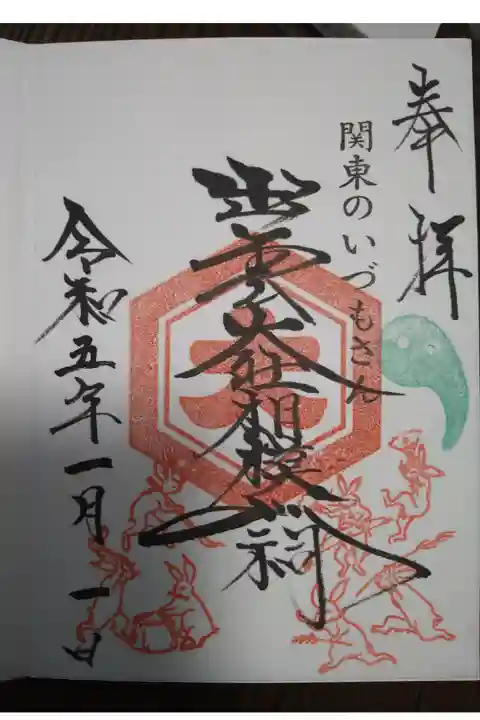 奉拝
関東のいづもさん
出雲大社相模分祠
令和五年一月一日